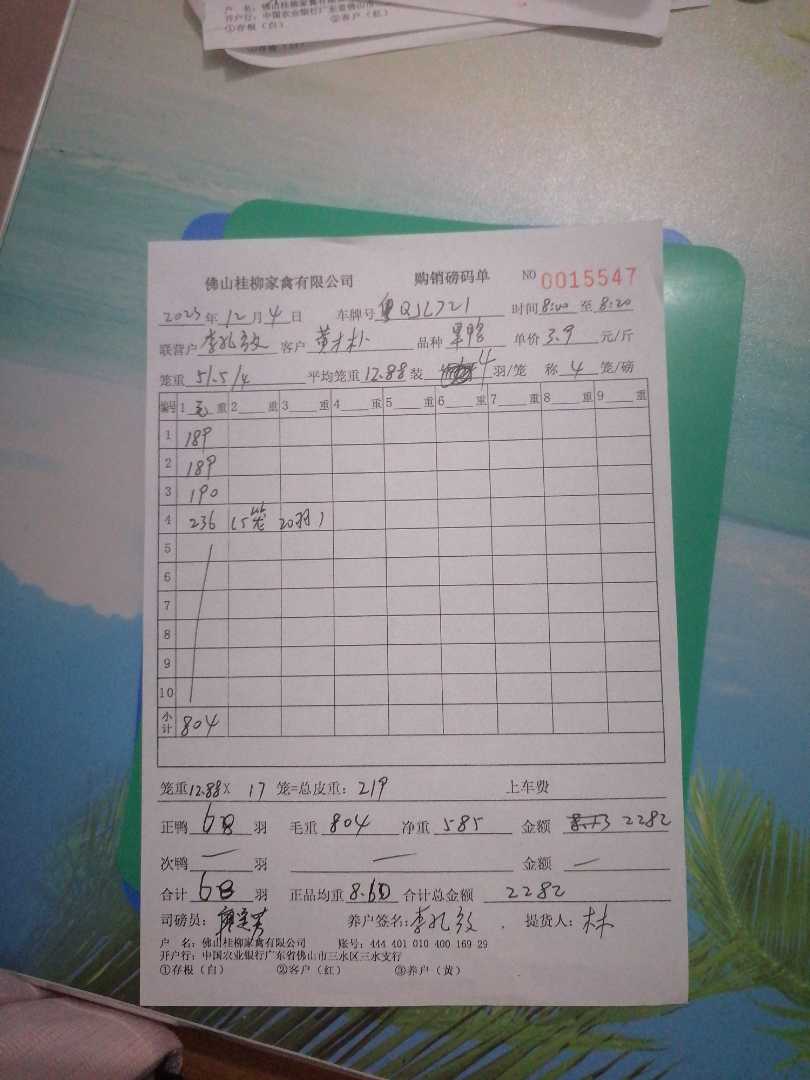 户 名：佛山桂柳家禽有限公司
开户行：中国农业银行广东省佛山市
①存根（白） ②客户（红）
佛山桂柳家禽有限公司 购销磅码单 NO 0015547
2023年12月4日 车牌号粤QJL721 时间8:00至8:20
联营户李孔致 客户 黄才朴 品种 单价3.9元/斤
笼重51.5/4 平均笼重12.88装 4羽/笼 称4笼/磅
编号 1毛重 2重 3重 4重 5重 6重 7重 8重 9重
1 189
2 189
3 190
4 236 (5笼 20羽)
5
6
7
8
9
10
小计 804
笼重12.88X 17笼=总皮重：219 上车费
正鸭68羽 毛重804 净重585 金额 2282
次鸭—羽 — 金额—
合计68羽 正品均重8.60 合计总金额2282
司磅员： 养户签名：李孔致 提货人：林
户 名：佛山桂柳家禽有限公司 账号：444 401 010 400 169 29
开户行：中国农业银行广东省佛山市三水区三水支行
①存根（白） ②客户（红） ③养户（黄）